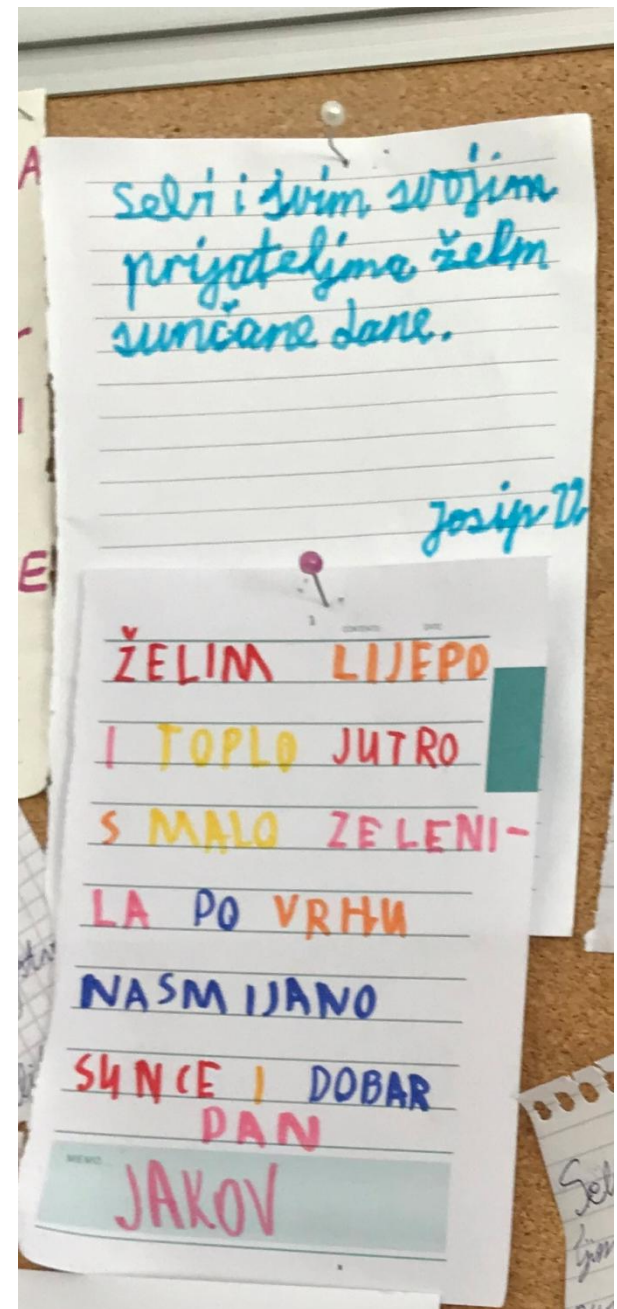 Sebi i svim svojim
prijateljma želm
sunčane dane.
Josip
ŽELIM LIJEPO
I TOPLO JUTRO
S MALO ZELENI-
LA PO VRHU
NASMIJANO
SUNCE I DOBAR
DAN
MEMO
JAKOV